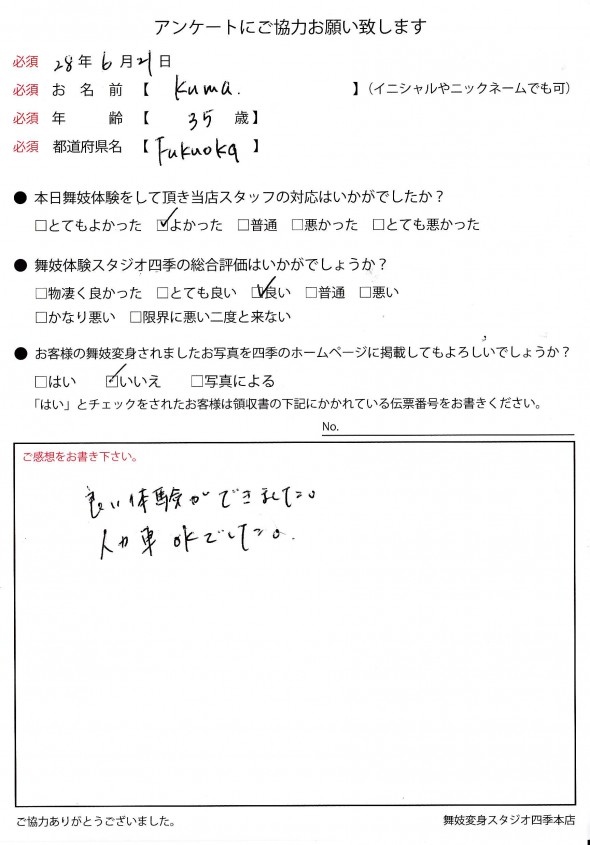 アンケートにご協力お願い致します
必須 28年6月21日
必須 お名前【 Kuma. 】（イニシャルやニックネームでも可）
必須 年齢【 35 歳】
必須 都道府県名【 Fukuoka 】
● 本日舞妓体験をして頂き当店スタッフの対応はいかがでしたか？
□とてもよかった ☑よかった □普通 □悪かった □とても悪かった
● 舞妓体験スタジオ四季の総合評価はいかがでしょうか？
□物凄く良かった □とても良い ☑良い □普通 □悪い
□かなり悪い □限界に悪い二度と来ない
● お客様の舞妓変身されましたお写真を四季のホームページに掲載してもよろしいでしょうか？
□はい ☑いいえ □写真による
「はい」とチェックをされたお客様は領収書の下記にかかれている伝票番号をお書きください。
No.
ご感想をお書き下さい。
良い体験ができました。
人力車 okでした。
ご協力ありがとうございました。
舞妓変身スタジオ四季本店